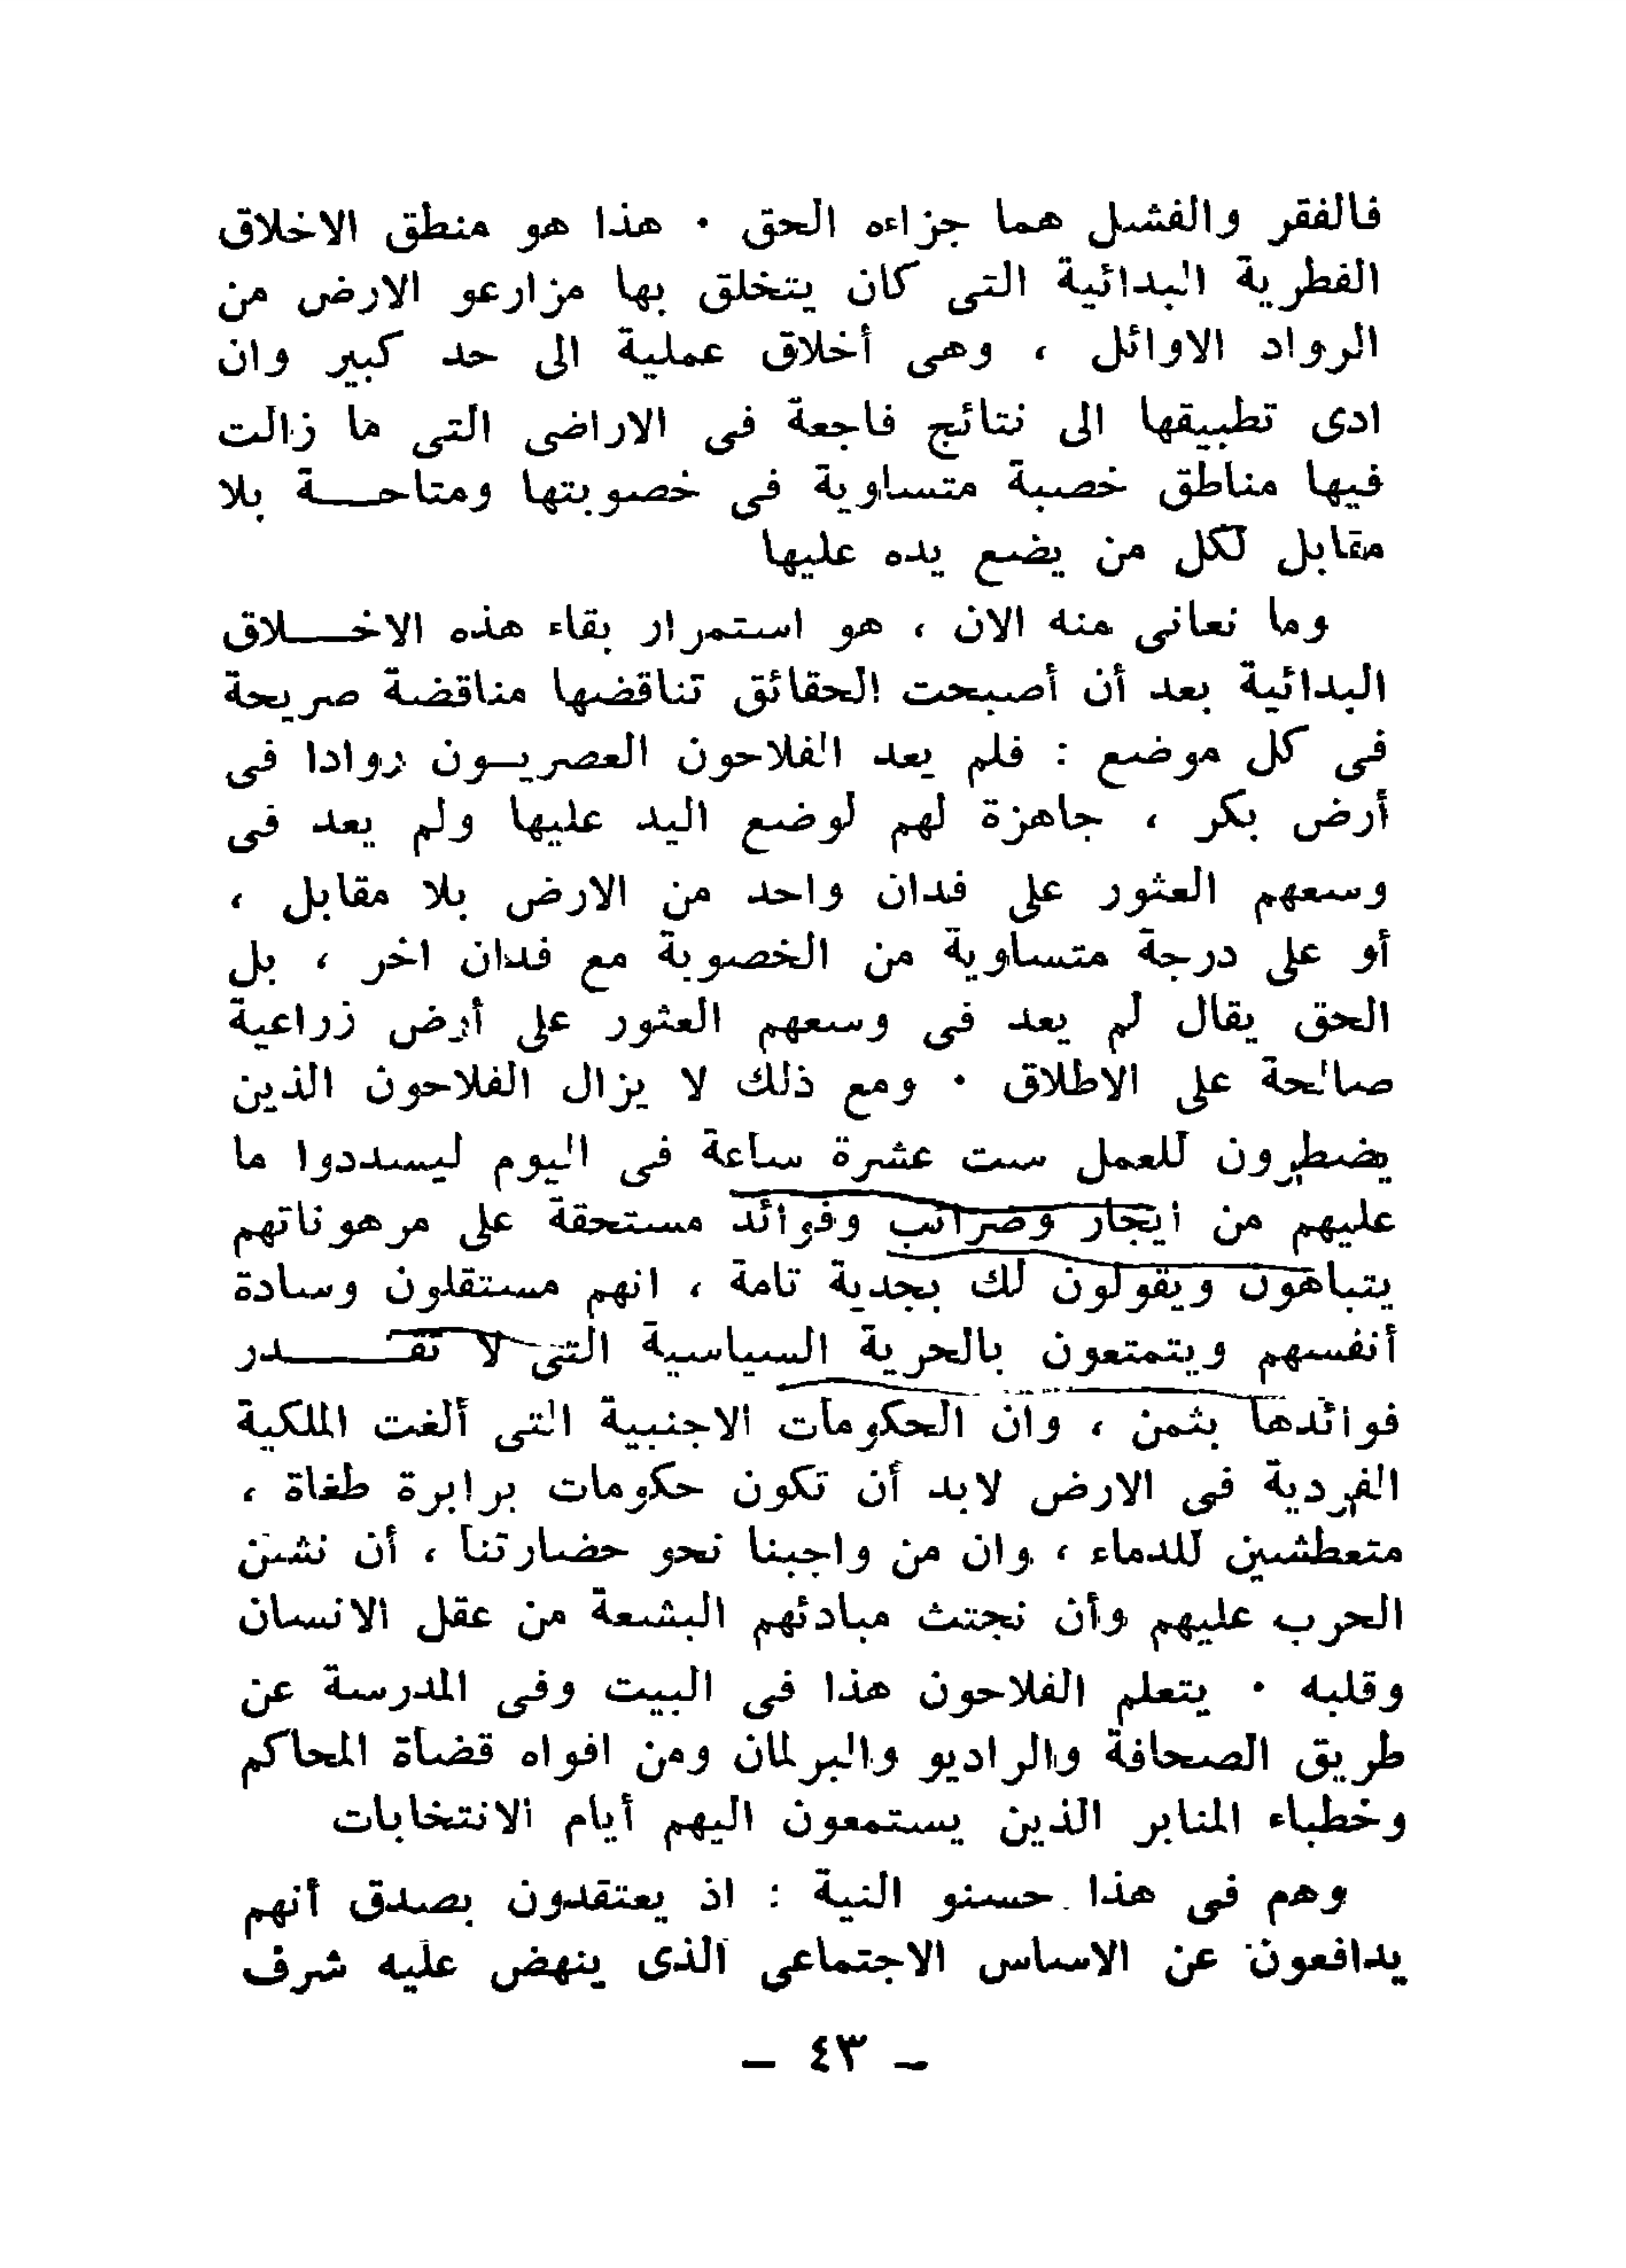 فالفقر والفشل هما جزاءه الحق · هذا هو منطق الاخلاق
الفطرية البدائية التى كان يتخلق بها مزارعو الارض من
الرواد الاوائل ، وهى أخلاق عملية الى حد كبير وان
ادى تطبيقها الى نتائج فاجعة فى الاراضى التى ما زالت
فيها مناطق خصبة متساوية فى خصوبتها ومتاحـــة بلا
مقابل لكل من يضع يده عليها
وما نعانى منه الان ، هو استمرار بقاء هذه الاخـــلاق
البدائية بعد أن أصبحت الحقائق تناقضها مناقضة صريحة
فى كل موضع : فلم يعد الفلاحون العصريــون روادا فى
أرض بكر ، جاهزة لهم لوضع اليد عليها ولم يعد فى
وسعهم العثور على فدان واحد من الارض بلا مقابل ،
أو على درجة متساوية من الخصوبة مع فدان اخر ، بل
الحق يقال لم يعد فى وسعهم العثور على أرض زراعية
صالحة على الاطلاق · ومع ذلك لا يزال الفلاحون الذين
يضطرون للعمل ست عشرة ساعة فى اليوم ليسددوا ما
عليهم من ايجار وضرائب وفوائد مستحقة على مرهوناتهم
يتباهون ويقولون لك بجدية تامة ، انهم مستقلون وسادة
أنفسهم ويتمتعون بالحرية السياسية التى لا تقـــــدر
فوائدها بثمن ، وان الحكومات الاجنبية التى ألغت الملكية
الفردية فى الارض لابد أن تكون حكومات برابرة طغاة ،
متعطشين للدماء ، وان من واجبنا نحو حضارتنا ، أن نشن
الحرب عليهم وأن نجتث مبادئهم البشعة من عقل الانسان
وقلبه · يتعلم الفلاحون هذا فى البيت وفى المدرسة عن
طريق الصحافة والراديو والبرلمان ومن افواه قضاة المحاكم
وخطباء المنابر الذين يستمعون اليهم أيام الانتخابات
وهم فى هذا حسنو النية : اذ يعتقدون بصدق أنهم
يدافعون عن الاساس الاجتماعى الذى ينهض عليه شرف
– ٤٣ –